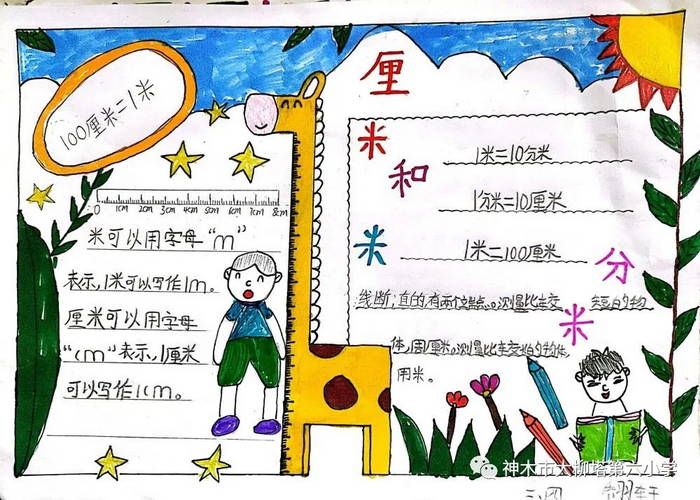 100厘米=1米
厘
米
和
米
分
米
0 1cm 2cm 3cm 4cm 5cm 6cm 7cm 8cm
米可以用字母“m”
表示,1米可以写作1m。
厘米可以用字母
“cm”表示,1厘米
可以写作1cm。
1米=10分米
1分米=10厘米
1米=100厘米
线断,直的,有两个端点。测量比较
短的物
体,用厘米。测量比较长的物体,
用米。
神木市大柳塔第六小学
三.四